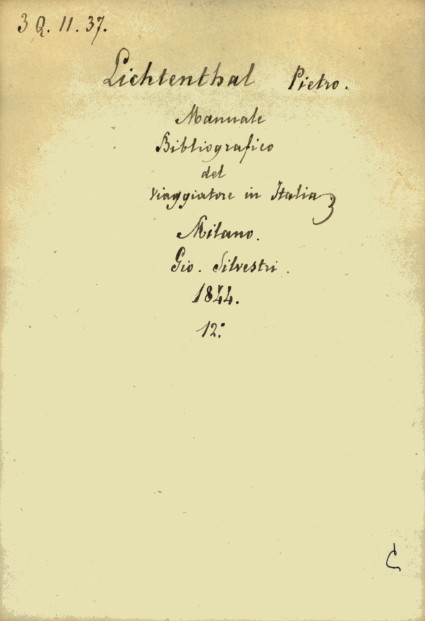 3 Q. 11. 37.
Lichtenthal Pietro.
Manuale
Bibliografico
del
Viaggiatore in Italia
Milano.
Gio. Silvestri.
1844.
12º
C